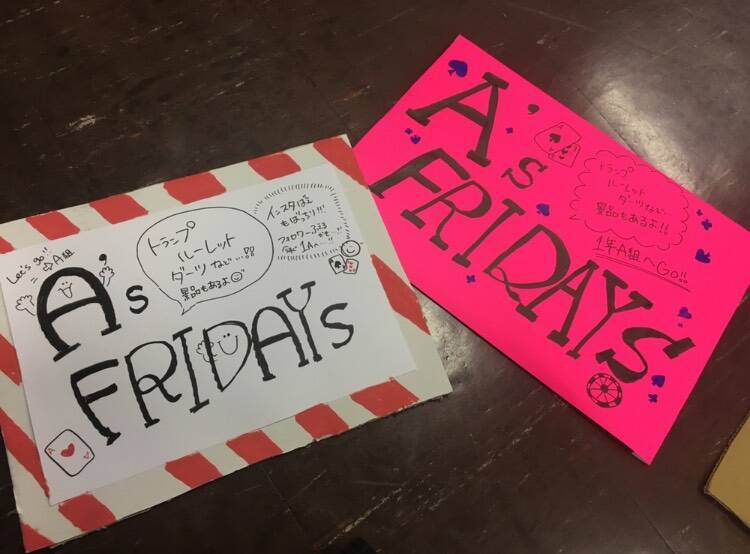 Let's go!!
⇒A組
A's
FRIDAYs
トランプ
ルーレット
ダーツなど…!!
景品もあるよ
インスタばえ
もばっちり!!
フォロワーふえる
1A
A
A's
FRIDAYS
トランプ
ルーレット
ダーツなど…
景品もあるよ!!
1年A組へGO!!